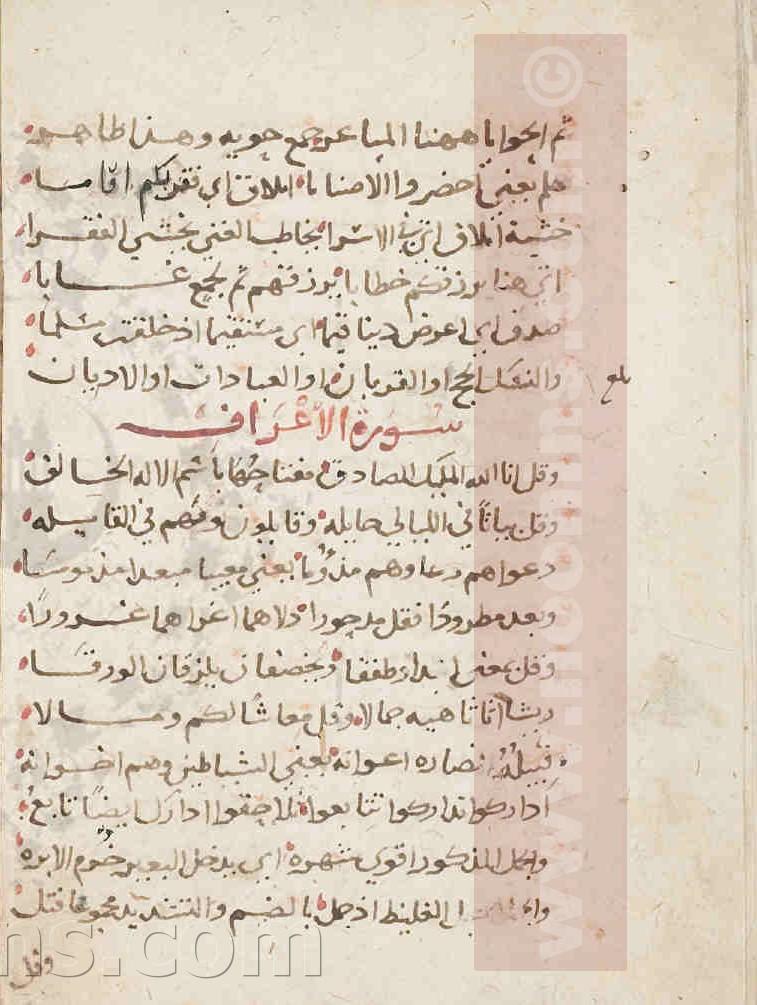 ثم الحوايا ههنا المباعر جمع حويه وهذا ظاهر
هلم يعني احضروا الاصناما املاق اي فقر بكم اقاما
خشية املاق اتى في الاسرا يخاطب الغني يخشى الفقرا
اتى هنا نرزقكم خطابا نرزقهم ثم لجمع غابا
صدف اي اعرض دينا قيما اي مستقيما اذ خلقت سلما
والنسك الحج او القربان او العبادات او الاديان
بلغ
سورة الاعراف
وقل انا الله المليك الصادق مفتاحها باسم الاله الخالق
وقل بياتا في الليالي حايله وقايلون نومهم في القايله
دعواهم دعاوهم مذؤما يعني معيبا مبعدا مذموما
وبعد مطرودا فقل مدحورا دلاهما اغراهما غرورا
وقل بمعنى ابتداء طفقا ويخصفان يلزقان الورقا
ريشا اثاثا هيه جمالا وقل معاشا لكم ومالا
قبيله انصاره اعوانه يعني الشياطين وهم اخوانه
اداركوا تداركوا تتابعوا تلاحقوا ادارك ايضا تابع
والجمل المذكور اقوى شهره اي يدخل البعير خرم الابره
الغليظ اذ جمل بالضم والتشديد فتل
وقل
www.neelains.com
ns.com
©